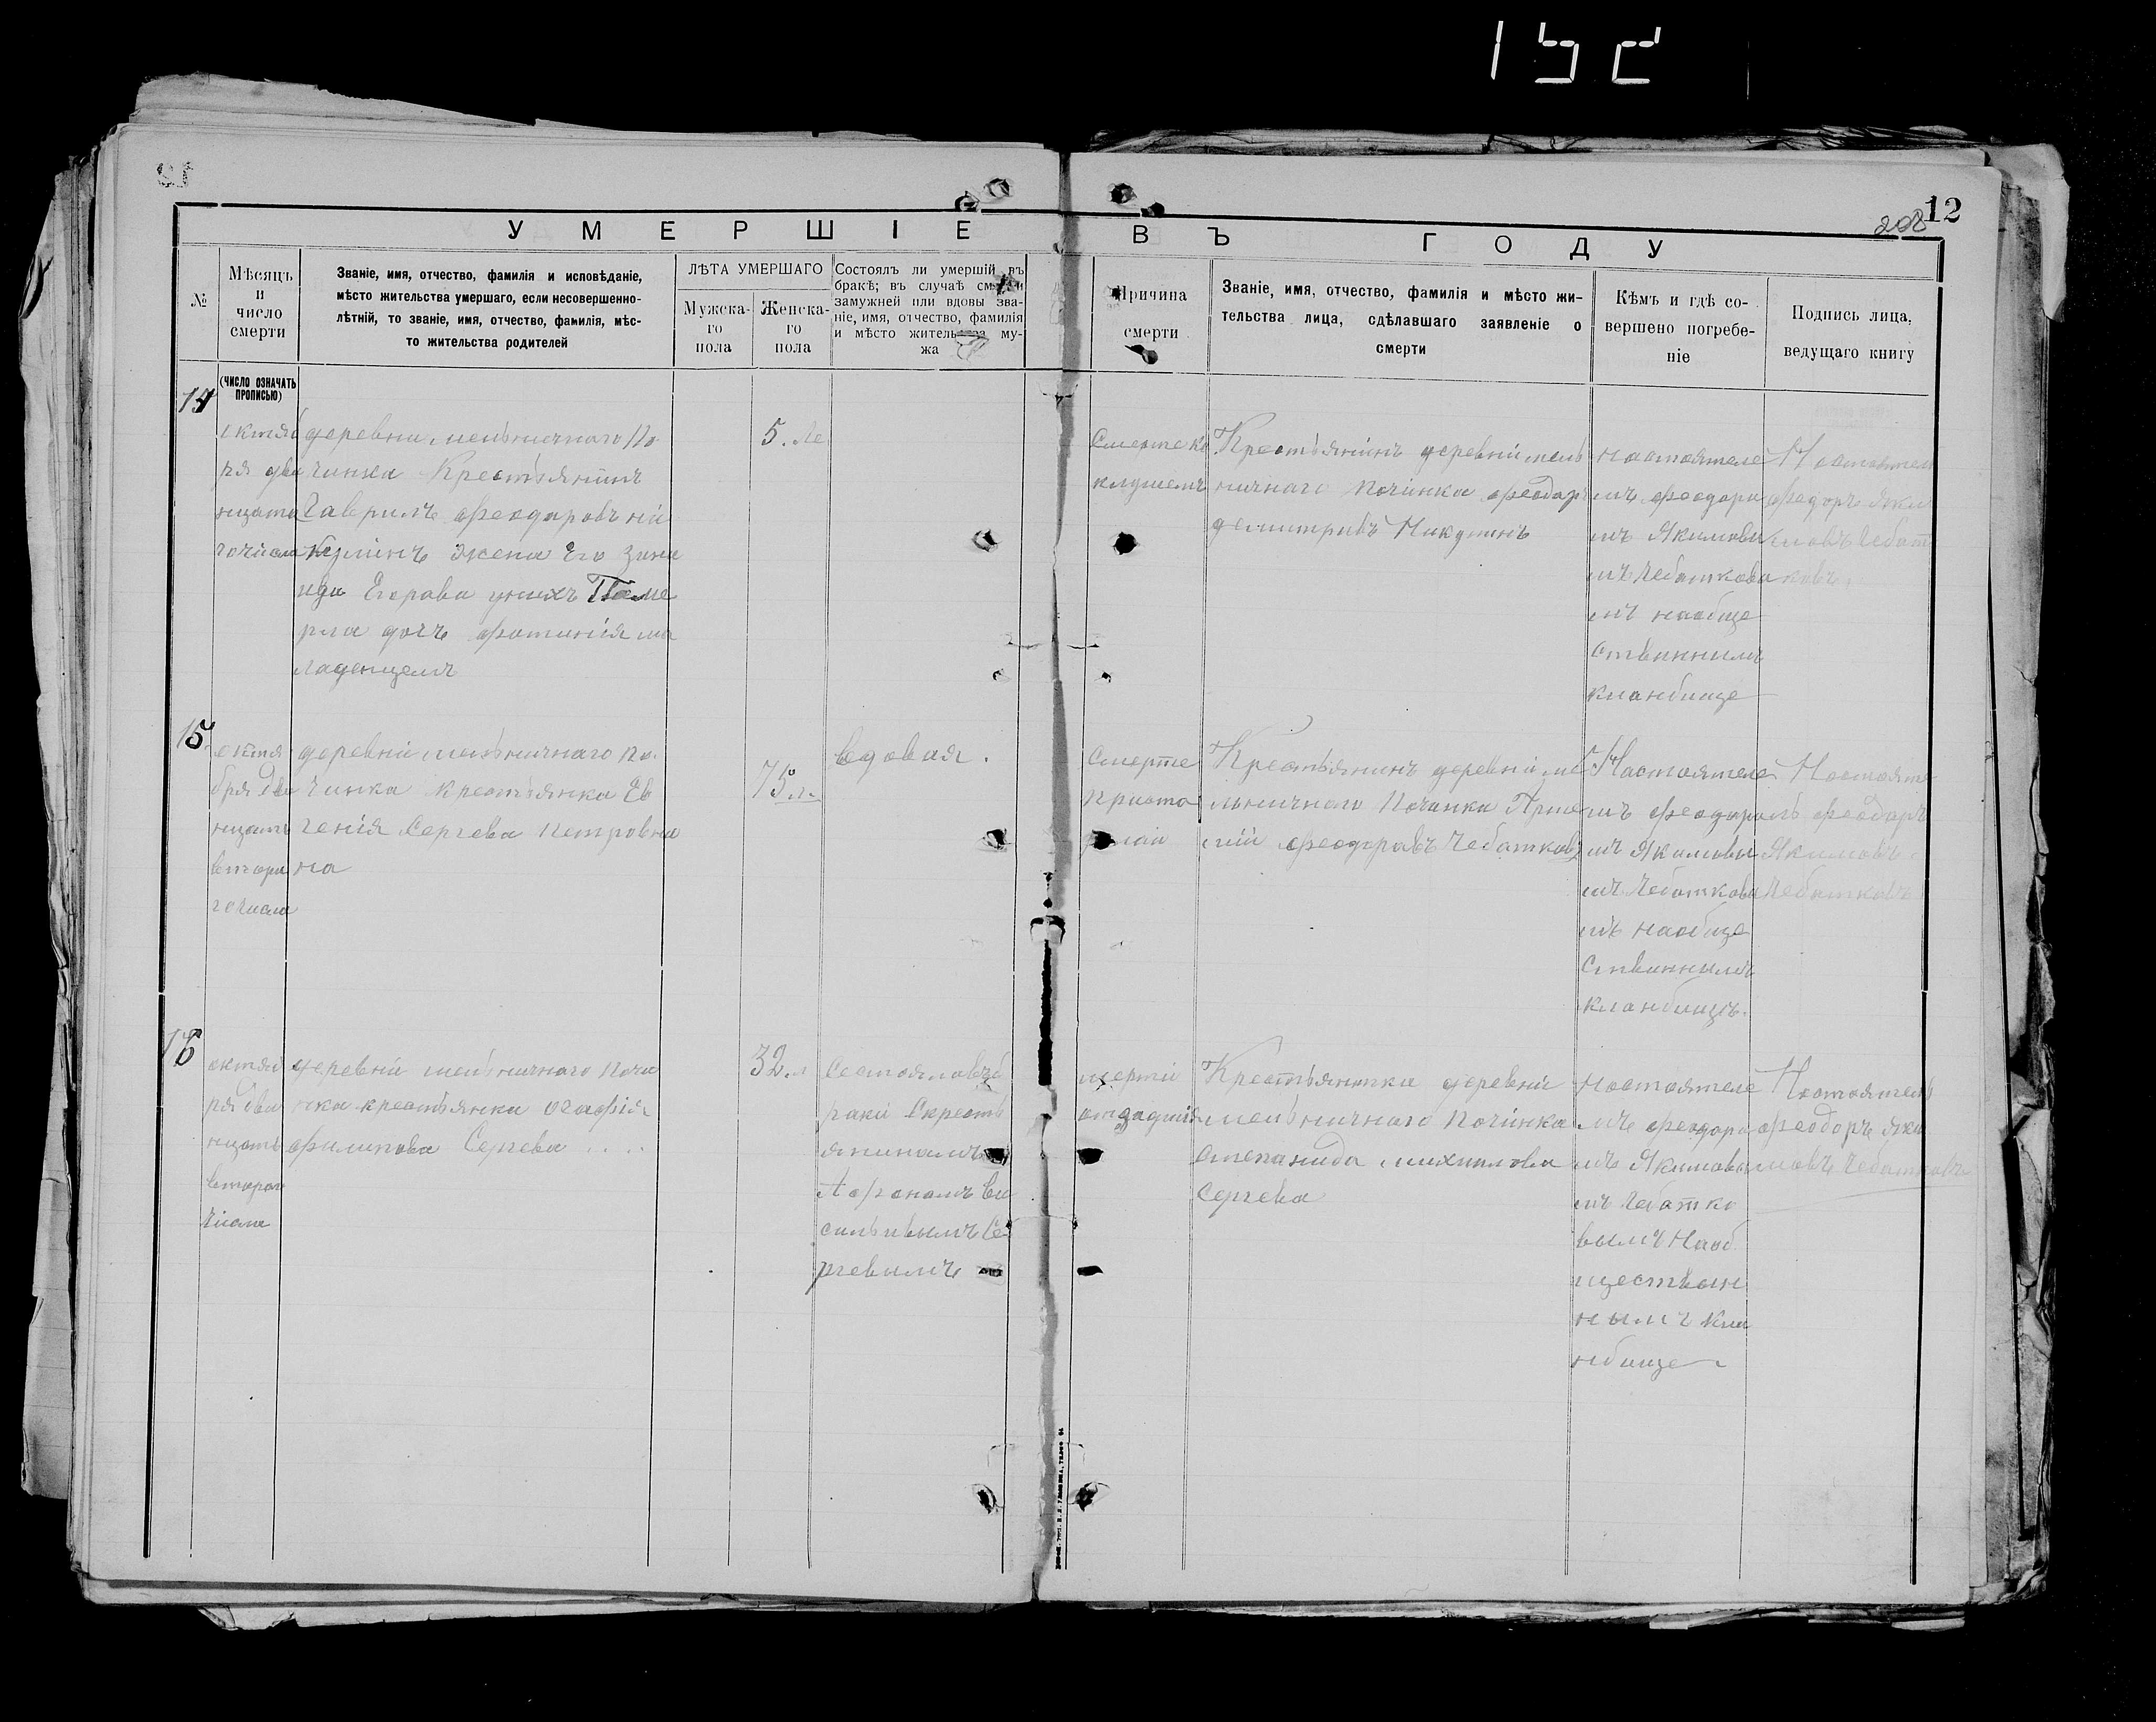 152
12
208
УМЕРШІЕ ВЪ ГОДУ
№
Мѣсяцъ
и
число
смерти
Званіе, имя, отчество, фамилія и исповѣданіе,
мѣсто жительства умершаго, если несовершенно-
лѣтній, то званіе, имя, отчество, фамилія, мѣс-
то жительства родителей
ЛѢТА УМЕРШАГО
Мужска-
го
пола
Женска-
го
пола
Состоялъ ли умершій въ
бракѣ; въ случаѣ
замужней или вдовы зва-
ніе, имя, отчество, фамилія
и мѣсто жительства му-
жа
Причина
смерти
Званіе, имя, отчество, фамилія и мѣсто жи-
тельства лица, сдѣлавшаго заявленіе о
смерти
Кѣмъ и гдѣ со-
вершено погребе-
ніе
Подпись лица,
ведущаго книгу
(ЧИСЛО ОЗНАЧАТЬ
ПРОПИСЬЮ)
14
октяб
ря два
нцата
гочисла
деревни мельничнаго По
чинка Крестьянинъ
Гаврилъ феодоровъ ни
кулинъ жена Его Зина
ида Егорава унихъ Поме
рла дочъ фотинія мла
ладенцемъ
5. Ле
Смерте
Крестьянинъ деревни мель
ничнаго починка феодаръ
демитривъ Никулинъ
настоятеле
мъ феодоро
мъ Якимовы
мъ Чебаткова
мъ наобще
ственнимъ
кланбище
Настоятель
феодоръ Яки
мовъ Чебат
ковъ
15
октя
бря Два
нцать
втора
гочисла
деревни мельничнаго по.
чинка крестьянка Ев
генія Сергева Петровна
на
75л.
вдовая.
Смерте
приста
Крестьянинъ деревни ме
льничнаго Починка Арте
мій феодоравъ Чебатковъ
Настоятеле
мъ феодоромъ
мъ Якимовы
мъ Чебаткова
мъ наобще
Ственнымъ
кланбищъ.
Настояте
феодаръ
Якимовъ
Чебатковъ
16
октяб
ря два
нцать
второг
числа
деревни мельничнаго Почи
нка крестьянка огафія
филипова Сергева . . . .
32.л
Состоялавъб
раки Скресть
яниномъ
Афонамъ Ва
сильивымъ Се
ргевымъ
смерти
Крестьянка деревни
мельничнаго починка
степанида михилова
Сергева
настоятеле
мъ феодоро
мъ Якимовы
мъ Чебатко
вымъ Наоб
ществен
нымъ кла
нбище
Настоятель
феодоръ Яки
мовъ Чебатковъ